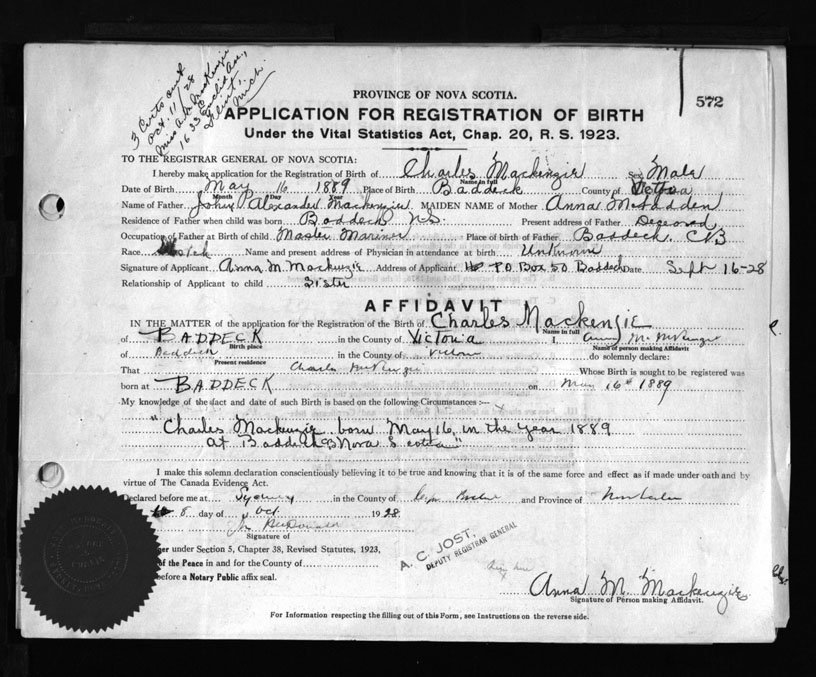 3 Certs out
Oct. 11/28
Miss A. M. MacKenzie
1633 Euclid Ave,
Flint,
Mich.
572
PROVINCE OF NOVA SCOTIA.
APPLICATION FOR REGISTRATION OF BIRTH
Under the Vital Statistics Act, Chap. 20, R. S. 1923.
TO THE REGISTRAR GENERAL OF NOVA SCOTIA:
I hereby make application for the Registration of Birth of Charles Mackenzie Sex Male
Name in full
Date of Birth May 16 1889 Place of Birth Baddeck County of Victoria
Month Day Year
Name of Father John Alexander Mackenzie MAIDEN NAME of Mother Anna McFadden
Residence of Father when child was born Baddeck NS. Present address of Father Deceased
Occupation of Father at Birth of child Master Mariner Place of birth of Father Baddeck, CB
Race Scotch Name and present address of Physician in attendance at birth Unknown
Signature of Applicant Anna M. Mackenzie Address of Applicant P.O. Box 50 Baddeck Date Sept 16-28
Relationship of Applicant to child Sister
AFFIDAVIT
IN THE MATTER of the application for the Registration of the Birth of Charles Mackenzie
Name in full
of BADDECK in the County of Victoria I, Anna M. McKenzie
Birth place Name of person making Affidavit
of Baddeck in the County of Victoria do solemnly declare:
Present residence
That Charles McKenzie Whose Birth is sought to be registered was
born at BADDECK on May 16th 1889
My knowledge of the fact and date of such Birth is based on the following Circumstances :—
"Charles Mackenzie born May 16, in the year 1889
at Baddeck CB Nova Scotia"
I make this solemn declaration conscientiously believing it to be true and knowing that it is of the same force and effect as if made under oath and by
virtue of The Canada Evidence Act.
Declared before me at Sydney in the County of Cape Breton and Province of Nova Scotia
8 day of Oct. 1928
Signature of
under Section 5, Chapter 38, Revised Statutes, 1923,
of the Peace in and for the County of
before a Notary Public affix seal.
A. C. JOST,
DEPUTY REGISTRAR GENERAL
Anna M. Mackenzie
Signature of Person making Affidavit.
For Information respecting the filling out of this Form, see Instructions on the reverse side.